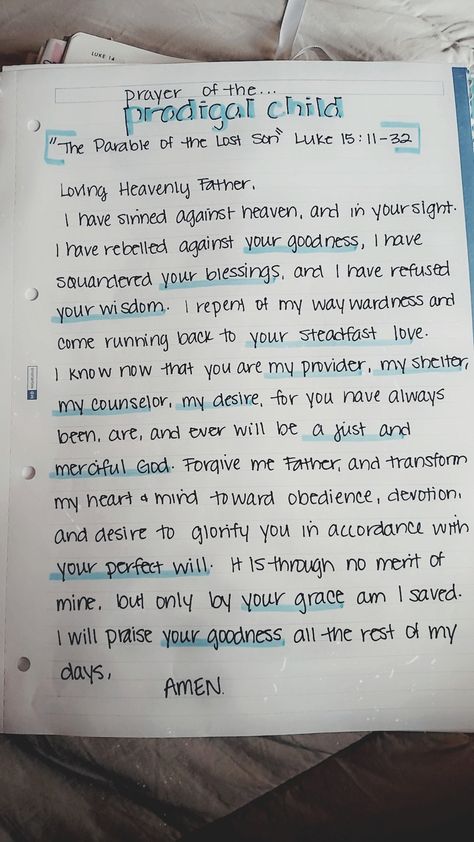 LUKE 14
prayer of the...
prodigal child
"The Parable of the Lost Son" Luke 15:11-32
Loving Heavenly Father,
I have sinned against heaven, and in your sight.
I have rebelled against your goodness, I have
squandered your blessings, and I have refused
your wisdom. I repent of my waywardness and
come running back to your steadfast love.
I know now that you are my provider, my shelter,
my counselor, my desire, for you have always
been, are, and ever will be a just and
merciful God. Forgive me Father, and transform
my heart & mind toward obedience, devotion,
and desire to glorify you in accordance with
your perfect will. It is through no merit of
mine, but only by your grace am I saved.
I will praise your goodness all the rest of my
days,
AMEN.